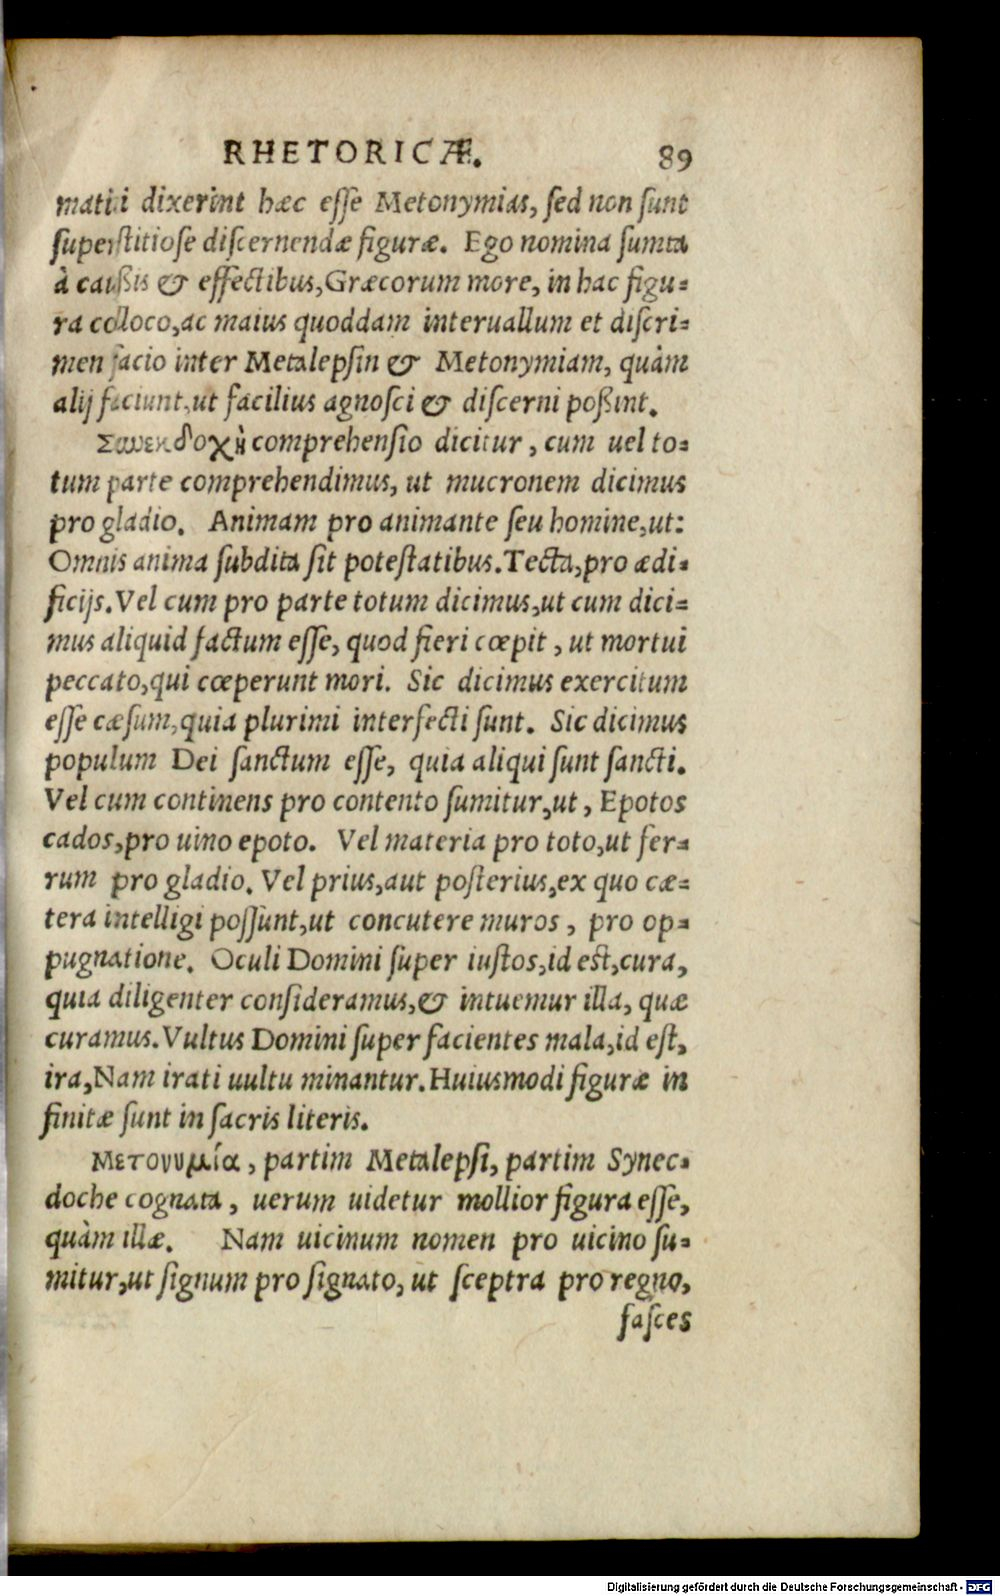 RHETORICÆ. 89
matici dixerint hæc eſſe Metonymias, ſed non ſunt
ſuperſtitioſe diſcernendæ figuræ. Ego nomina ſumta
à cauſsis & effectibus, Græcorum more, in hac figu-
ra colloco, ac maius quoddam interuallum et diſcri-
men facio inter Metalepſin & Metonymiam, quàm
alij faciunt, ut facilius agnoſci & diſcerni poſsint.
Συνεκδοχὴ comprehenſio dicitur, cum uel to-
tum parte comprehendimus, ut mucronem dicimus
pro gladio. Animam pro animante ſeu homine, ut:
Omnis anima ſubdita ſit poteſtatibus. Tecta, pro ædi-
ficijs. Vel cum pro parte totum dicimus, ut cum dici-
mus aliquid factum eſſe, quod fieri cœpit, ut mortui
peccato, qui cœperunt mori. Sic dicimus exercitum
eſſe cæſum, quia plurimi interfecti ſunt. Sic dicimus
populum Dei ſanctum eſſe, quia aliqui ſunt ſancti.
Vel cum continens pro contento ſumitur, ut, Epotos
cados, pro uino epoto. Vel materia pro toto, ut fer-
rum pro gladio. Vel prius, aut poſterius, ex quo cæ-
tera intelligi poſſunt, ut concutere muros, pro op-
pugnatione. Oculi Domini ſuper iuſtos, id est, cura,
quia diligenter conſideramus, & intuemur illa, quæ
curamus. Vultus Domini ſuper facientes mala, id eſt,
ira, Nam irati uultu minantur. Huiusmodi figuræ in
finitæ ſunt in ſacris literis.
Μετονυμία, partim Metalepſi, partim Synec-
doche cognata, uerum uidetur mollior figura eſſe,
quàm illæ. Nam uicinum nomen pro uicino ſu-
mitur, ut ſignum pro ſignato, ut ſceptra pro regno,
faſces
Digitalisierung gefördert durch die Deutsche Forschungsgemeinschaft - DFG